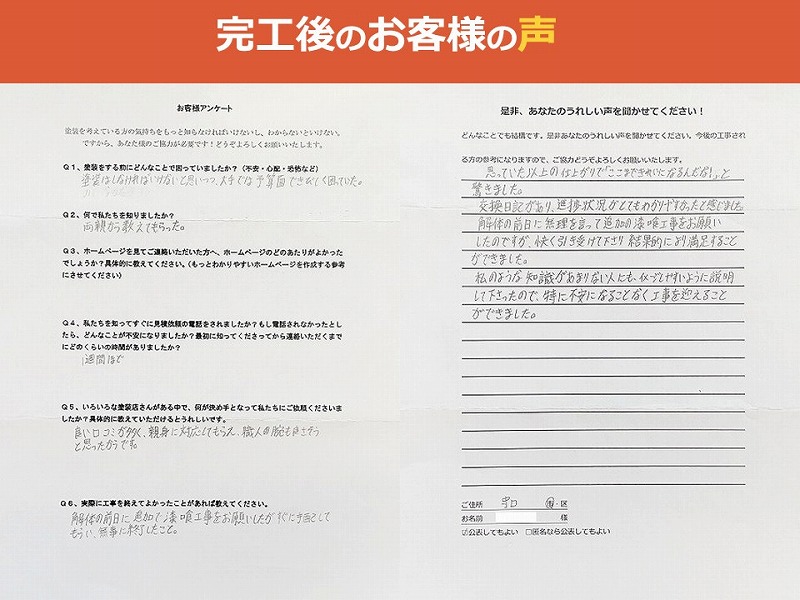 完工後のお客様の声
お客様アンケート
塗装を考えている方の気持ちをもっと知らなければいけないし、わからないといけない。
ですから、あなた様のご協力が必要です！どうぞよろしくお願いいたします。
Q1、塗装をする前にどんなことで困っていましたか？（不安・心配・恐怖など）
塗装はしなければいけないと思いつつ、大手では予算面できびしく困っていた。
Q2、何で私たちを知りましたか？
両親から教えてもらった。
Q3、ホームページを見てご連絡いただいた方へ、ホームページのどのあたりがよかった
でしょうか？具体的に教えてください。（もっとわかりやすいホームページを作成する参考
にさせてください）
Q4、私たちを知ってすぐに見積依頼の電話をされましたか？もし電話されなかったとし
たら、どんなことが不安になりましたか？最初に知ってくださってから連絡いただくまで
にどのくらいの時間がありましたか？
1週間ほど
Q5、いろいろな塗装店さんがある中で、何が決め手となって私たちにご依頼くださいま
したか？具体的に教えていただけるとうれしいです。
良い口コミが多く、親身に対応してもらえ、職人の腕も良さそう
と思ったからです。
Q6、実際に工事を終えてよかったことがあれば教えてください。
解体の前日に追加で漆喰工事をお願いしたがすぐに手配して
もらい、無事に終了したこと。
是非、あなたのうれしい声を聞かせてください！
どんなことでも結構です。是非あなたのうれしい声を聞かせてください。今後の工事され
る方の参考になりますので、ご協力どうぞよろしくお願いいたします。
思っていた以上の仕上がりで「ここまできれいになるんだな！」と
驚きました。
交換日記があり、進捗状況がとてもわかりやすかったと感じました。
解体の前日に無理を言って追加の漆喰工事をお願い
したのですが、快く引き受けて下さり結果的により満足すること
ができました。
私のような知識があまりない人にも、イメージしやすいように説明
して下さったので、特に不安になることなく工事を迎えること
ができました。
ご住所 守口 市・区
お名前 様
☑公表してもよい □匿名なら公表してもよい